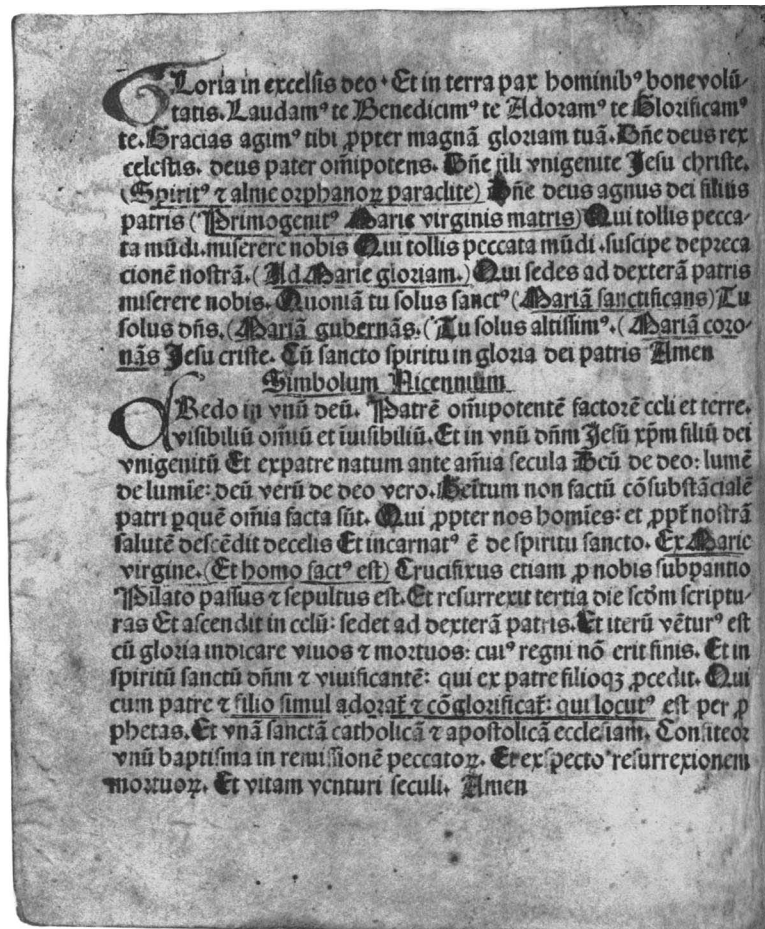 GLoria in excelsis deo. Et in terra pax hominibꝰ bonevolū-
tatis. Laudamꝰ te Benedicimꝰ te Adoramꝰ te Glorificamꝰ
te. Gracias agimꝰ tibi ꝓpter magnā gloriam tuā. Dn̄e deus rex
celestis. deus pater om̄ipotens. Dn̄e fili vnigenite Jesu christe.
(Spiritꝰ ⁊ alme orphanoꝝ paraclite) Dn̄e deus agnus dei filius
patris (Primogenitꝰ Marie virginis matris) Qui tollis pecca-
ta mūdi. miserere nobis Qui tollis peccata mūdi. suscipe depreca
cionē nostrā. (Ad Marie gloriam.) Qui sedes ad dexterā patris
miserere nobis. Quoniā tu solus sanctꝰ (Mariā sanctificans) Tu
solus dn̄s. (Mariā gubernās. (Tu solus altissimꝰ. (Mariā coro-
nās Jesu criste. Cū sancto spiritu in gloria dei patris Amen
Simbolum Nicennium
CRedo in vnū deū. Patrē om̄ipotentē factorē celi et terre.
visibiliū om̄iū et īuisibiliū. Et in vnū dn̄m Jesū xp̄m filiū dei
vnigenitū Et expatre natum ante om̄ia secula Deū de deo: lumē
de lumīe: deū verū de deo vero. Geītum non factū cōsubstācialē
patri ꝑquē om̄ia facta sūt. Qui ꝓpter nos homīes: et ꝓpt̄ nostrā
salutē descēdit decelis Et incarnatꝰ ē de spiritu sancto. Ex Marie
virgine. (Et homo factꝰ est) Crucifixus etiam ꝓ nobis subpantio
Pilato passus ⁊ sepultus est. Et resurrexit tertia die scd̄m scriptu-
ras Et ascendit in celū: sedet ad dexterā patris. Et iterū vēturꝰ est
cū gloria iudicare viuos ⁊ mortuos: cuiꝰ regni nō erit finis. Et in
spiritū sanctū dn̄m ⁊ viuificantē: qui ex patre filioqꝫ ꝓcedit. Qui
cum patre ⁊ filio simul adorat̄ ⁊ cōglorificat̄: qui locutꝰ est per ꝓ
phetas. Et vnā sanctā catholicā ⁊ apostolicā ecclesiam. Confiteor
vnū baptisma in remissionē peccatoꝝ. Et exspecto resurrexionem
mortuoꝝ. Et vitam venturi seculi. Amen